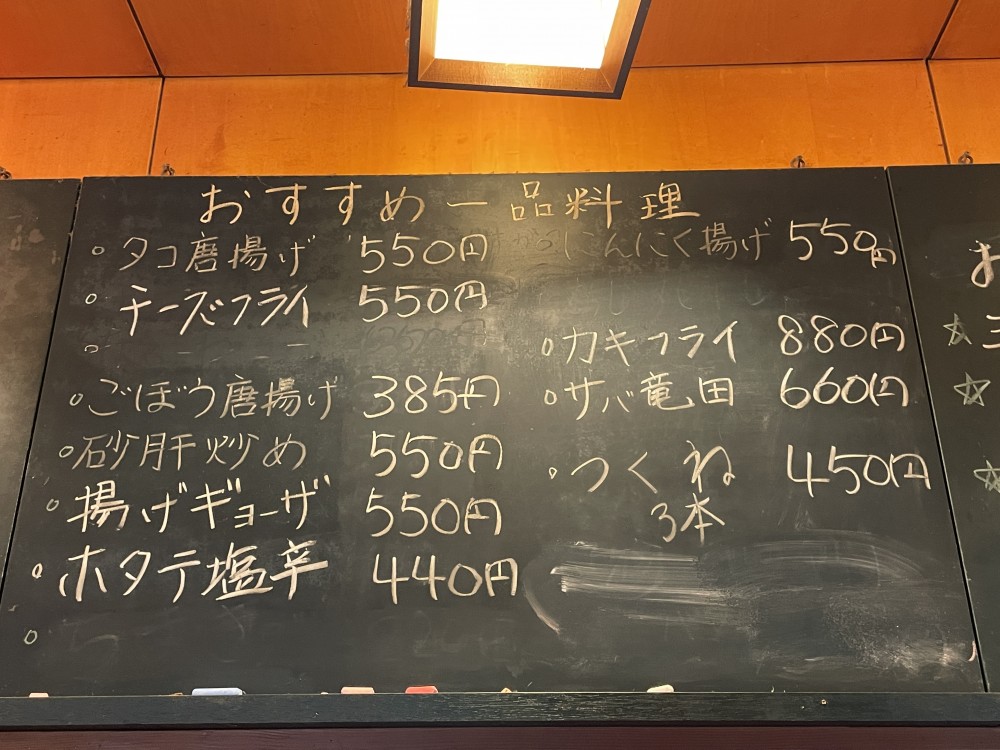 おすすめ一品料理
タコ唐揚げ 550円
チーズフライ 550円
ごぼう唐揚げ 385円
砂肝炒め 550円
揚げギョーザ 550円
ホタテ塩辛 440円
にんにく揚げ 550円
カキフライ 880円
サバ竜田 660円
つくね 450円
3本
お
☆三
☆
☆